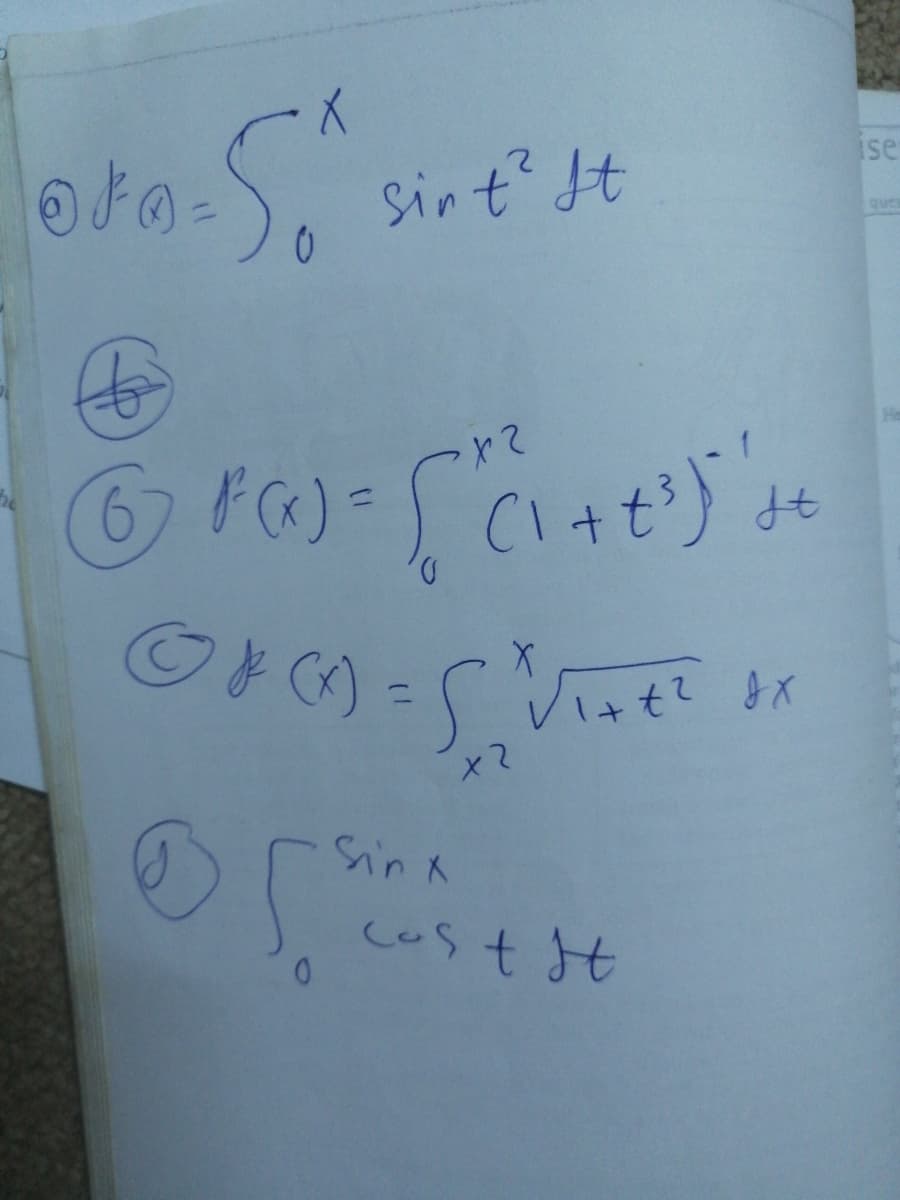 ⓐ F(x) = ∫₀ˣ sin t² dt
ⓑ
ⓑ F(x) = ∫₀^{x²} (1 + t³)⁻¹ dt
ⓒ F(x) = ∫_{x²}^{x} √(1 + t²) dx
ⓓ ∫₀^{sin x} cos t dt
ise